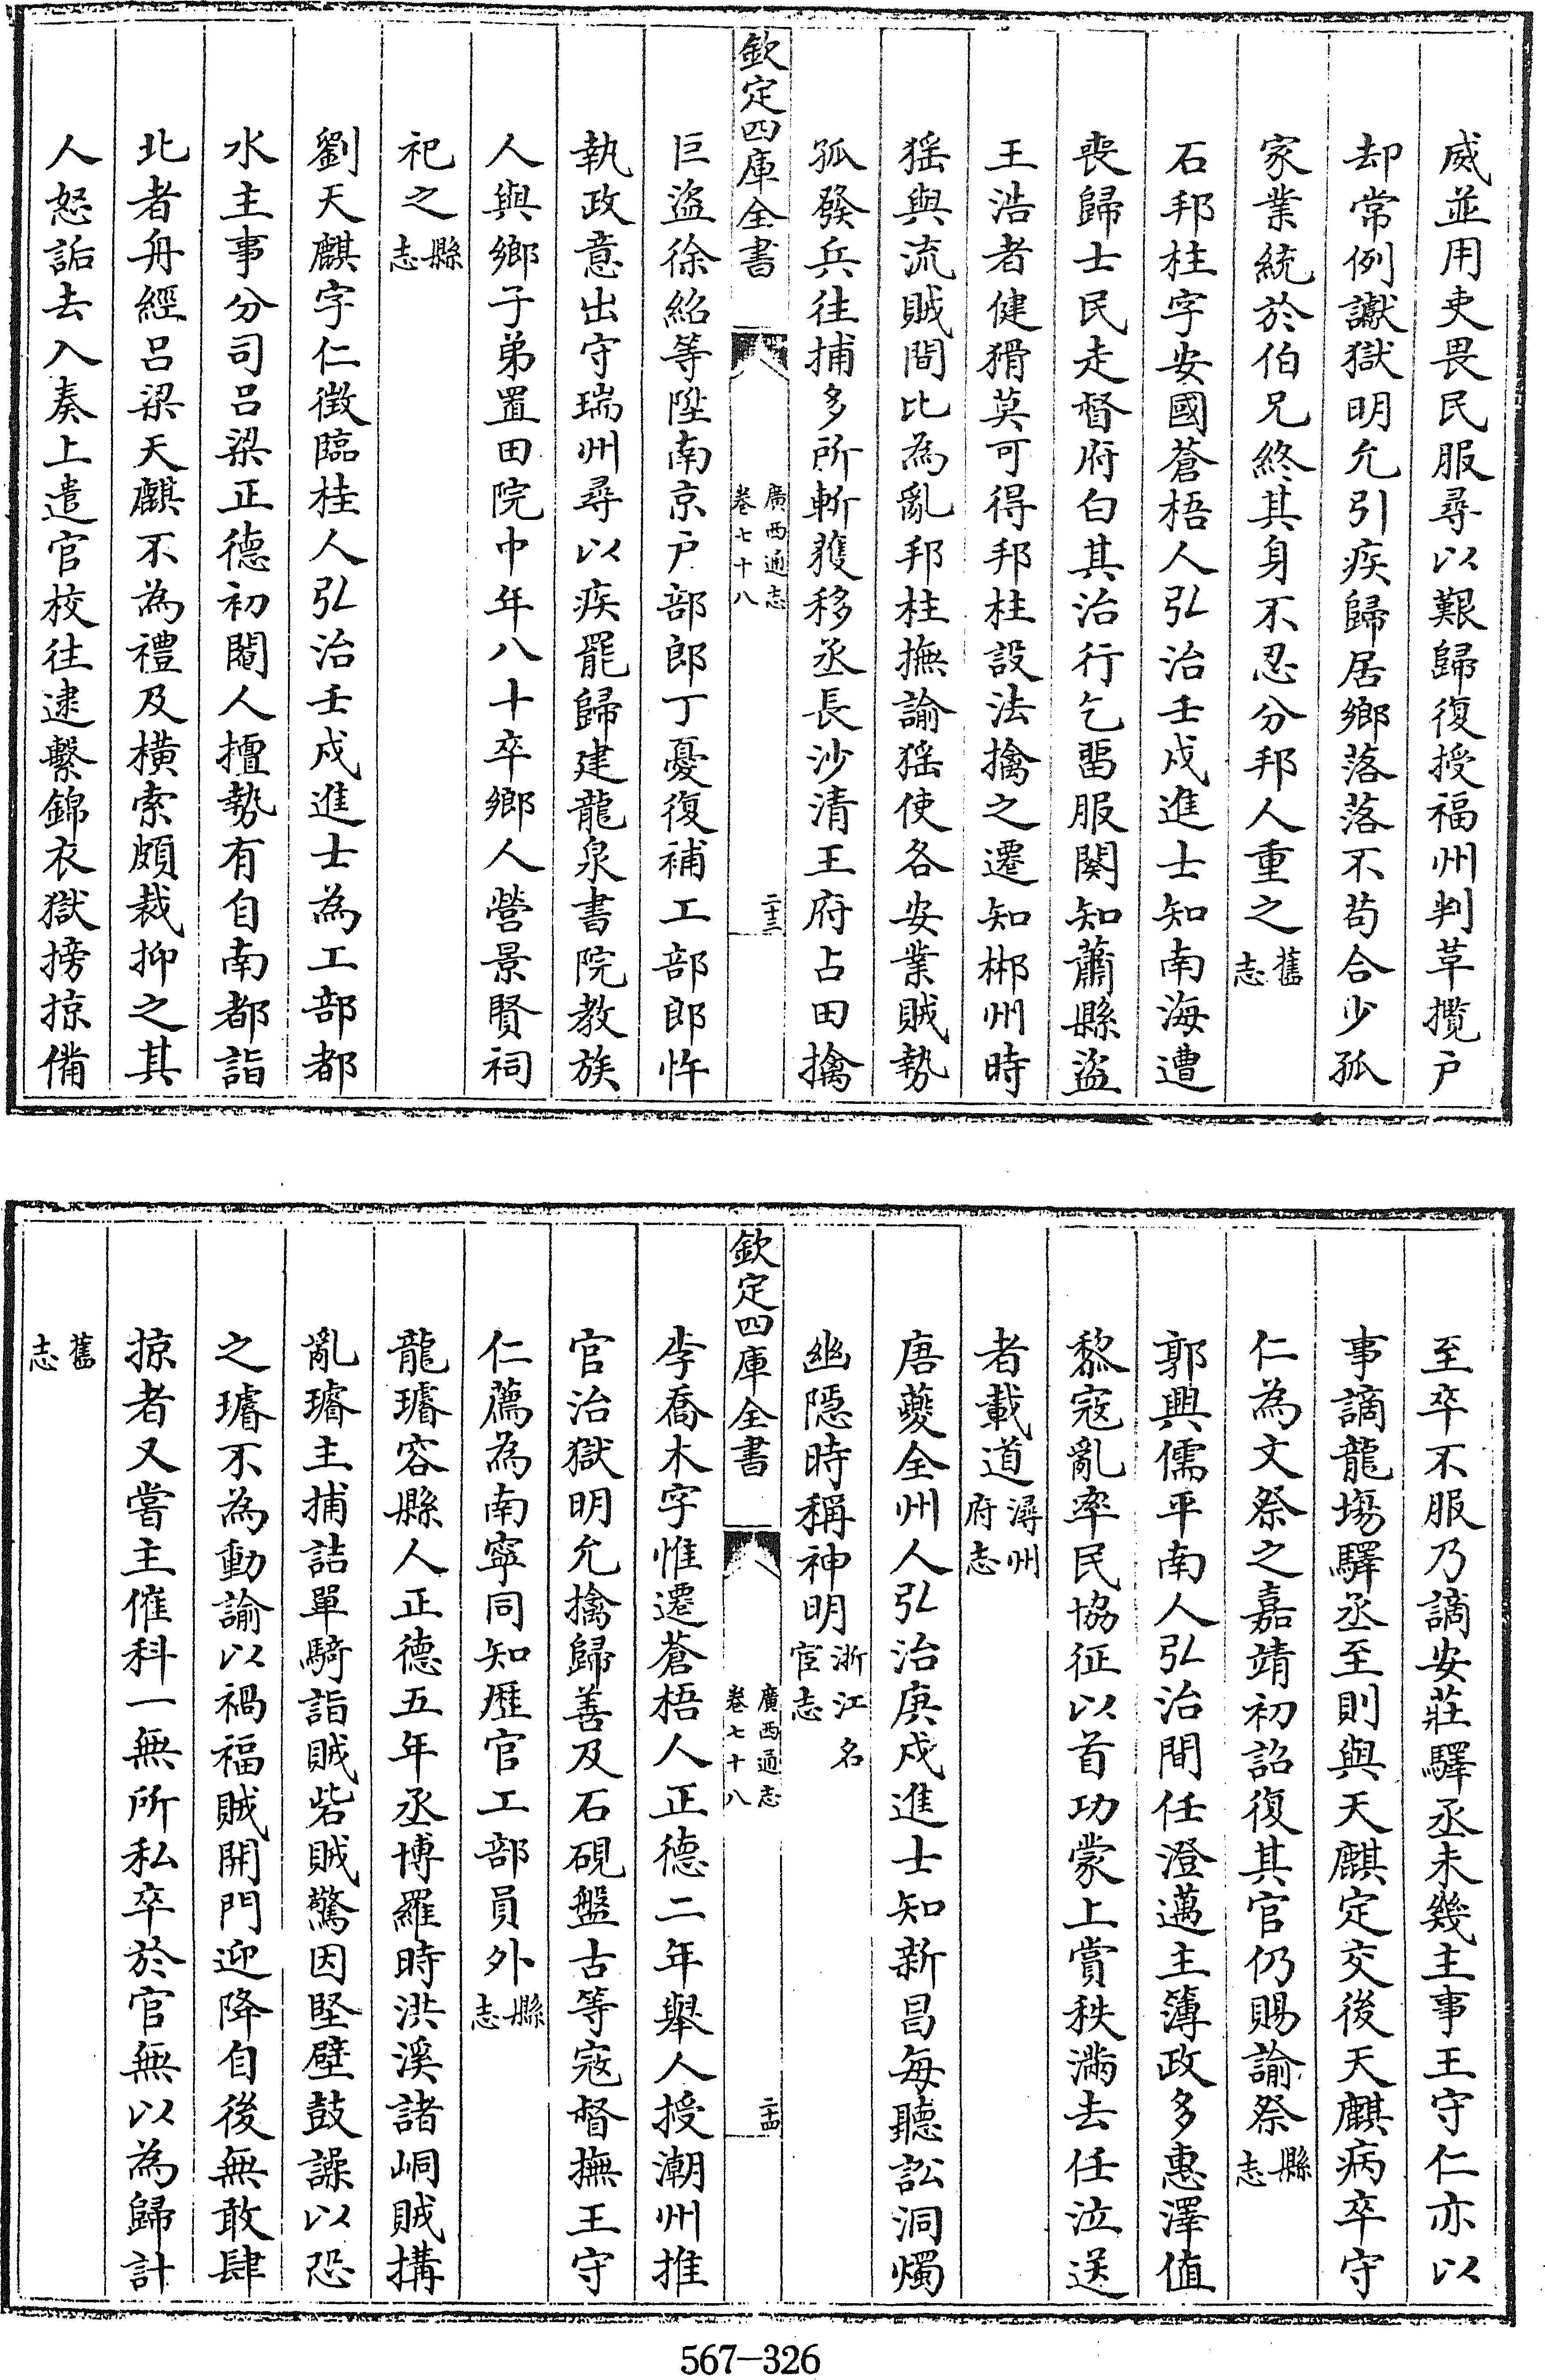 威並用吏畏民服尋以艱歸復授福州判草攬户
却常例讞獄明允引疾歸居鄉落落不苟合少孤
家業統於伯兄終其身不忍分邦人重之舊志
石邦柱字安國蒼梧人弘治壬戌進士知南海遭
喪歸士民走督府白其治行乞畱服闋知蕭縣盜
王浩者健猾莫可得邦柱設法擒之遷知郴州時
猺與流賊間比為亂邦柱撫諭猺使各安業賊勢
孤發兵往捕多所斬獲移丞長沙清王府占田擒
欽定四庫全書 廣西通志 卷七十八 二十三
巨盜徐紹等陞南京户部郎丁憂復補工部郎忤
執政意出守瑞州尋以疾罷歸建龍泉書院教族
人與鄉子弟置田院中年八十卒鄉人營景賢祠
祀之縣志
劉天麒字仁徵臨桂人弘治壬戌進士為工部都
水主事分司吕梁正德初閹人擅勢有自南都詣
北者舟經吕梁天麒不為禮及横索頗裁抑之其
人怒詬去入奏上遣官校往逮繫錦衣獄搒掠備
至卒不服乃謫安莊驛丞未幾主事王守仁亦以
事謫龍塲驛丞至則與天麒定交後天麒病卒守
仁為文祭之嘉靖初詔復其官仍賜諭祭縣志
郭興儒平南人弘治間任澄邁主簿政多惠澤值
黎寇亂率民協征以首功蒙上賞秩滿去任泣送
者載道潯州府志
唐夔全州人弘治庚戌進士知新昌每聽訟洞燭
幽隱時稱神明浙江名宦志
欽定四庫全書 廣西通志 卷七十八 二十四
李喬木字惟遷蒼梧人正德二年舉人授潮州推
官治獄明允擒歸善及石硯盤古等寇督撫王守
仁薦為南寧同知歴官工部員外縣志
龍璿容縣人正德五年丞博羅時洪溪諸峒賊搆
亂璿主捕詰單騎詣賊砦賊驚因堅壁鼓譟以恐
之璿不為動諭以禍福賊開門迎降自後無敢肆
掠者又嘗主催科一無所私卒於官無以為歸計
舊志
567—326